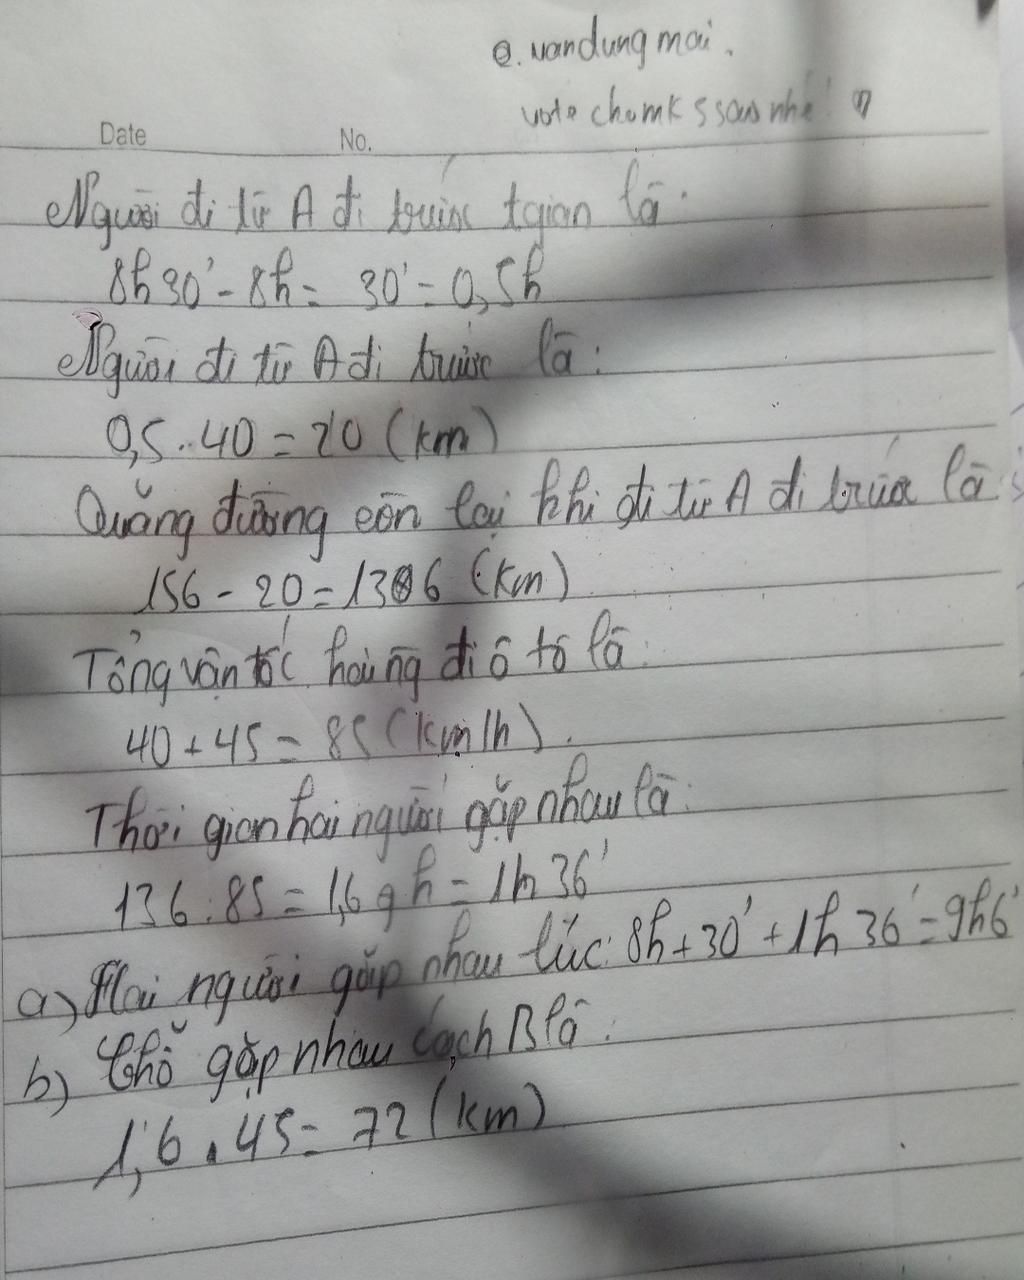 @.vandungmai.
vote chomk 5 sao nhé!
Date No.
Người đi từ A đi trước tgian là:
8h30' - 8h = 30' = 0,5h
Người đi từ A đi trước là:
0,5 . 40 = 20 (km)
Quãng đường còn lại khi đi từ A đi trước là:
156 - 20 = 136 (km)
Tổng vận tốc hai ng đi ô tô là:
40 + 45 = 85 (km/h).
Thời gian hai người gặp nhau là:
136 : 85 = 1,6 h = 1h 36'
a) Hai người gặp nhau lúc: 8h + 30' + 1h 36' = 9h6'
b) Chỗ gặp nhau cách B là:
1,6 . 45 = 72 (km)